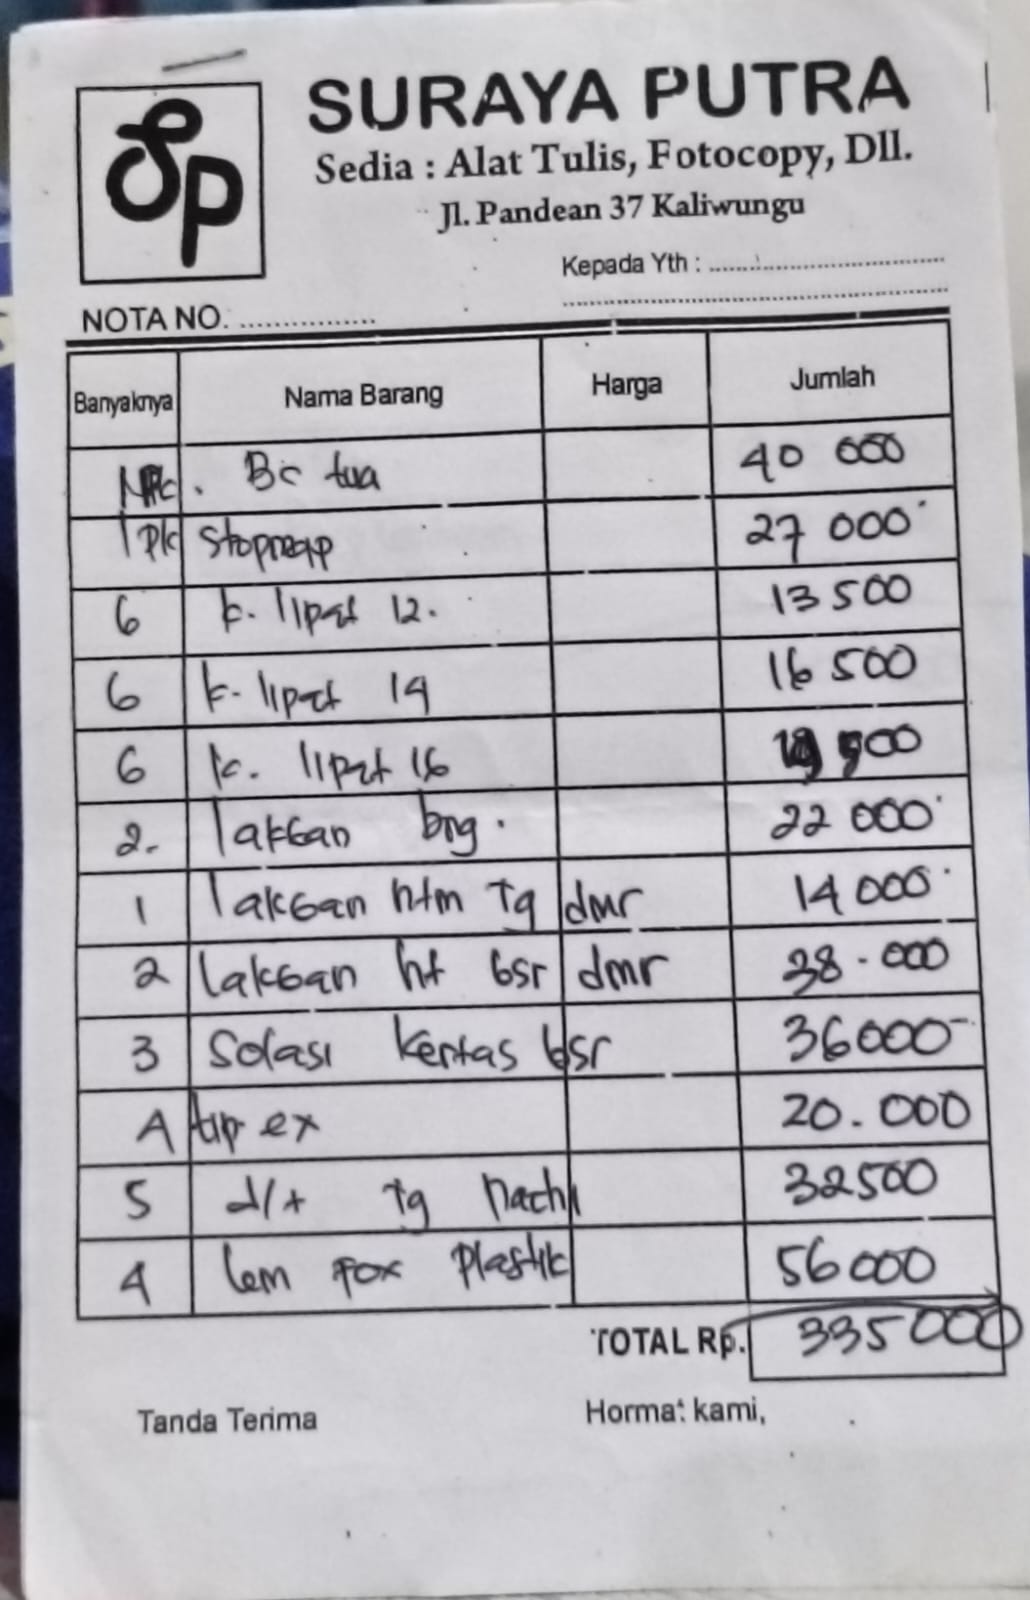 SP
SURAYA PUTRA
Sedia : Alat Tulis, Fotocopy, Dll.
Jl. Pandean 37 Kaliwungu
Kepada Yth :
NOTA NO.
Banyaknya Nama Barang Harga Jumlah
Bc tua 40 000
1 Pk Stopmap 27 000
6 k. lipat 12. 13 500
6 k. lipat 14 16 500
6 k. lipat 16
2. lakban bng. 22 000
1 lakban htm Tg dmr 14 000
2 lakban ht bsr dmr 38.000
3 Solasi kertas bsr 36000
4 tip ex 20.000
5 d/t Tg nachi 32500
4 lem fox Plastik 56000
TOTAL Rp. 335 000
Tanda Terima Hormat kami,